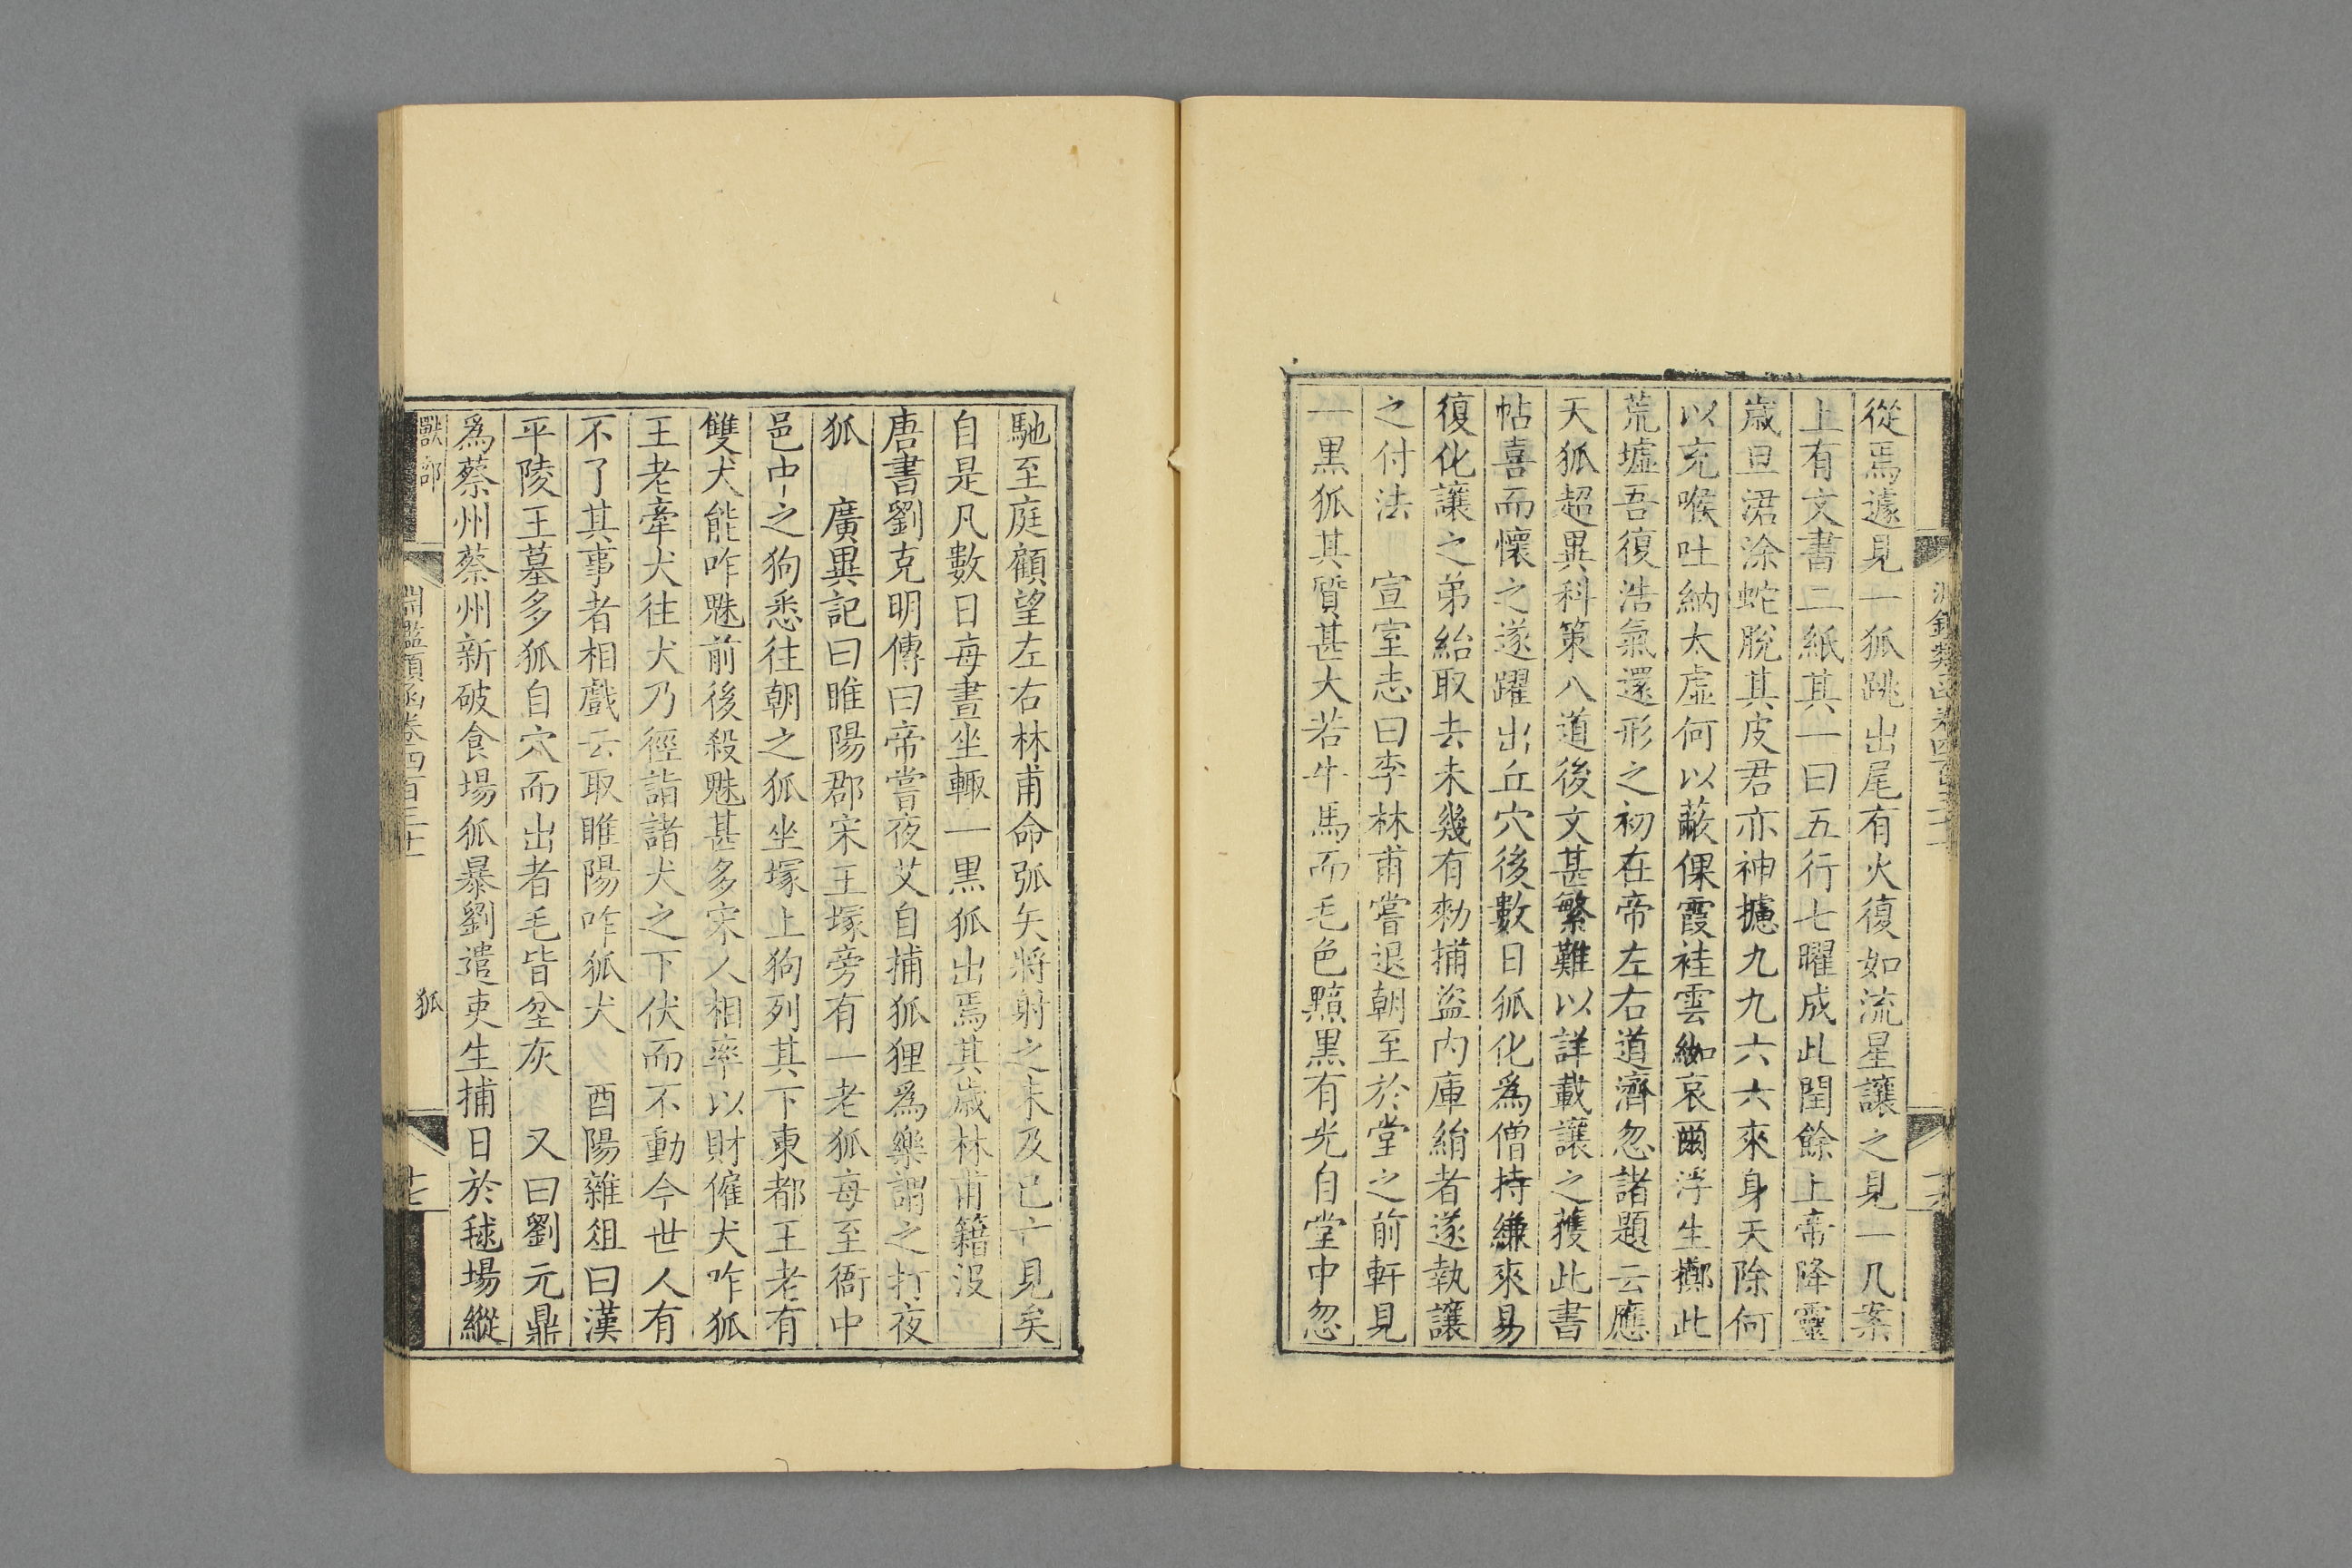 從焉遽見一狐跳出尾有火復如流星讓之見一几案
上有文書二紙其一曰五行七曜成此閏餘上帝降靈
歲旦涒涂蛇脫其皮君亦神攄九九六六來身天除何
以充喉吐納太虛何以蔽倮霞袿雲袽哀爾浮生擲此
荒墟吾復浩氣還形之初在帝左右道濟忽諸題云應
天狐超異科策八道後文甚繁難以詳載讓之獲此書
帖喜而懷之遂躍出丘穴後數日狐化爲僧持縑來易
復化讓之弟紿取去未幾有勑捕盜內庫絹者遂執讓
之付法 宣室志曰李林甫嘗退朝至於堂之前軒見
一黑狐其質甚大若牛馬而毛色黯黑有光自堂中忽
馳至庭顧望左右林甫命弧矢將射之未及已亡見矣
自是凡數日每晝坐輒一黑狐出焉其歲林甫籍沒
唐書劉克明傳曰帝嘗夜艾自捕狐狸爲樂謂之打夜
狐 廣異記曰睢陽郡宋王塚旁有一老狐每至衙中
邑中之狗悉往朝之狐坐塚上狗列其下東都王老有
雙犬能咋魅前後殺魅甚多宋人相率以財僱犬咋狐
王老牽犬往犬乃徑詣諸犬之下伏而不動今世人有
不了其事者相戲云取睢陽咋狐犬 酉陽雜俎曰漢
平陵王墓多狐自穴而出者毛皆坌灰 又曰劉元鼎
爲蔡州蔡州新破食場狐暴劉遣吏生捕日於毬場縱
獸部 淵鑑類函卷四百三十一 狐 十七